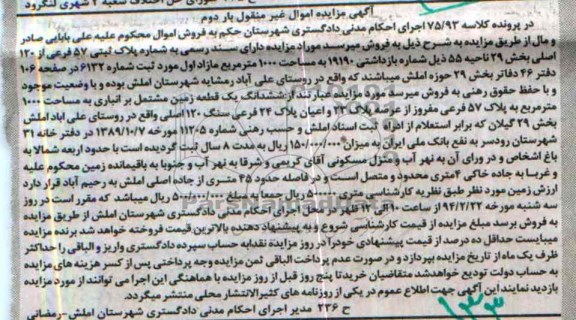 آگهی مزایده اموال غیر منقول بار دوم
در پرونده کلاسه ۷۵/۹۳ اجرای احکام مدنی دادگستری شهرستان حکم به فروش اموال محکوم علیه علی بابایی صادر
و مال از طریق مزایده به شرح ذیل به فروش میرسد موراد مزایده دارای سند رسمی به شماره پلاک ثبتی ۵۷ فرعی از ۱۲۰
اصلی بخش ۲۹ ناحیه ۵۵ ذیل شماره بازداشتی ۱۹۱۹۰ به مساحت ۱۰۰۰ مترمربع مازاد اول مورد ثبت شماره ۶۱۳۲ در صفحه ۱۰۶
دفتر ۴۶ دفاتر بخش ۲۹ حوزه املش میباشند که واقع در روستای علی آباد رمشابه شهرستان املش بوده و با وضعیت موجود
و با حفظ حقوق رهنی به فروش میرسد مورد مزایده عبارتند از ششدانگ یک قطعه زمین مشتمل بر انباری به مساحت ۱۰۰۰
مترمربع به پلاک ۵۷ فرعی مفروز از عرصه پلاک ۲۳ و اعیان پلاک ۲۴ فرعی سنگ ۱۲۰ اصلی واقع در روستای علی اباد املش
بخش ۲۹ گیلان که برابر استعلام از اداره ثبت اسناد املش و حسب رهنی شماره ۱۱۲۰۵ مورخه ۱۳۸۹/۱۰/۷ در دفتر خانه ۳۱
شهرستان رودسر به نفع بانک ملی ایران به میزان ۱۵۰/۰۰۰/۰۰۰ ریال به مدت ۸ سال ثبت گردیده است با حدود اربعه شمالا به
باغ اشخاص و در ورای آن به نهر آب و منزل مسکونی آقای کریمی و شرقا به نهر آب و جنوبا به باقیمانده زمین محکوم علیه
و غربا به جاده خاکی ۴ متری محدود و متصل است و در فاصله حدود ۴۵ متری از جاده اصلی املش به رحیم آباد قرار دارد
ارزش زمین مورد نظر طبق نظریه کارشناسی ریال جمعا به مبلغ ریال میباشد که مقرر است در روز
سه شنبه مورخه ۹۴/۲/۲۲ از ساعت ۱۰ الی ۱۲ ظهر در محل اجرای احکام مدنی دادگستری شهرستان املش از طریق مزایده
به فروش برسد مبلغ مزایده از قیمت کارشناسی شروع و به پیشنهاد دهنده بالاترین قیمت فروخته خواهد شد برنده مزایده
میبایست حداقل ده درصد از قیمت پیشنهادی خود را در روز مزایده نقدا به حساب سپرده دادگستری واریز و الباقی را حداکثر
ظرف یک ماه از تاریخ مزایده بپردازد و در صورت عدم پرداخت الباقی ثمن مزایده وجه پرداختی پس از کسر هزینه های مزایده
به حساب دولت تودیع خواهدشد متقاضیان خرید تا پنج روز قبل از روز مزایده با هماهنگی این اجرا می توانند از مورد مزایده
بازدید نمایند این آگهی جهت اطلاع عموم در یکی از روزنامه های کثیرالانتشار محلی منتشر میگردد.
ح ۲۳۶ مدیر اجرای احکام مدنی دادگستری شهرستان املش-رمضانی
۱۳۳